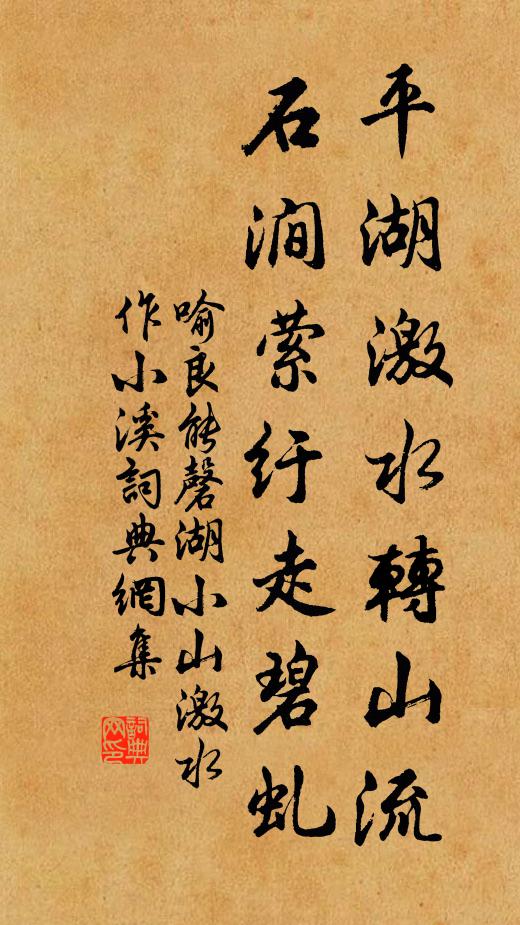 平湖激水轉山流
石澗萦紆走碧虬
喻良能磬湖小山激水
作小溪詞典網集
詞典
网印